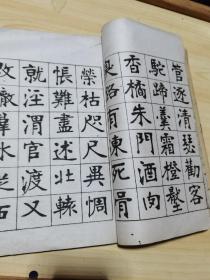 管逐清瑟勸客
駝蹄羹霜橙壓
香橘朱門酒肉
臭路有凍死骨
榮枯咫尺異惆
悵難盡述北轅
就涇渭官渡又